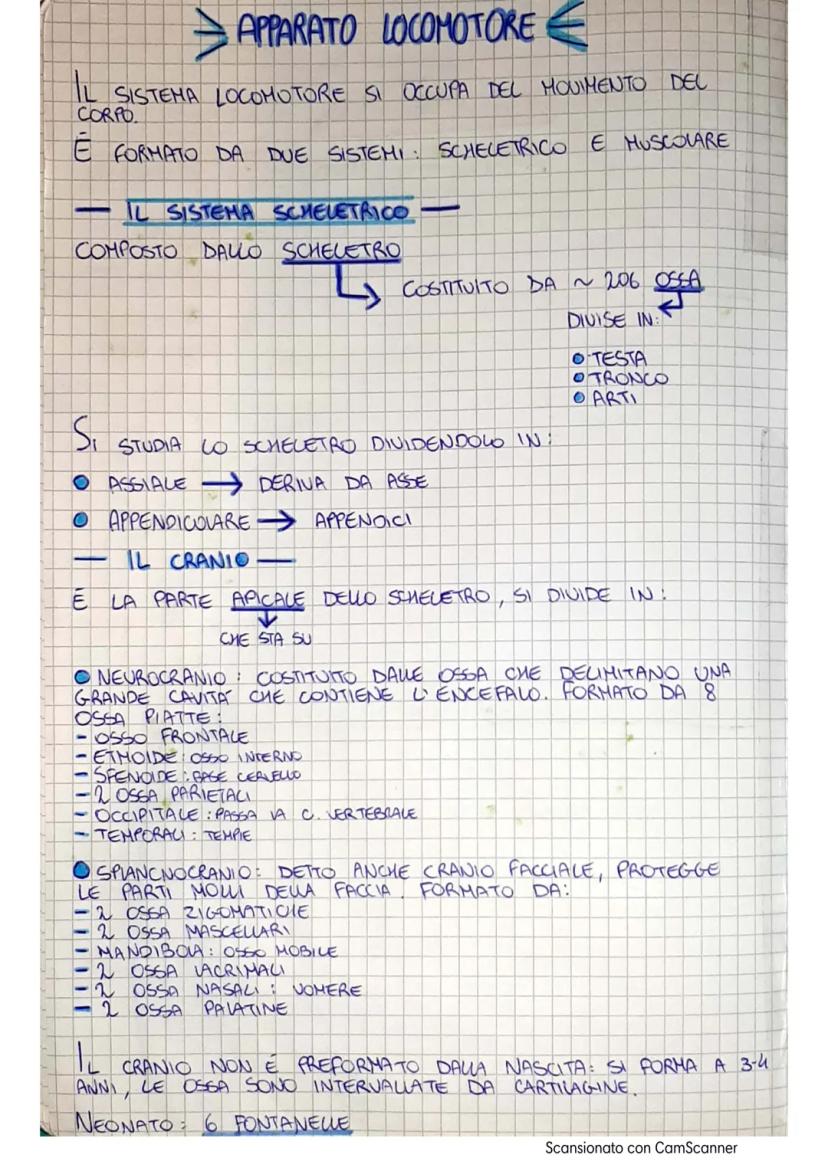 APPARATO LOCOMOTORE
IL SISTEMA LOCOMOTORE SI OCCUPA DEL MOVIMENTO DEL
CORPO.
È FORMATO DA DUE SISTEMI: SCHELETRICO E MUSCOLARE
— IL SISTEMA SCHELETRICO —
COMPOSTO DALLO SCHELETRO
COSTITUITO DA ~ 206 OSSA
DIVISE IN:
• TESTA
• TRONCO
• ARTI
SI STUDIA LO SCHELETRO DIVIDENDOLO IN:
• ASSIALE → DERIVA DA ASSE
• APPENDICOLARE → APPENDICI
— IL CRANIO —
È LA PARTE APICALE DELLO SCHELETRO, SI DIVIDE IN:
CHE STA SU
• NEUROCRANIO: COSTITUITO DALLE OSSA CHE DELIMITANO UNA
GRANDE CAVITÀ CHE CONTIENE L'ENCEFALO. FORMATO DA 8
OSSA PIATTE:
- OSSO FRONTALE
- ETMOIDE: OSSO INTERNO
- SFENOIDE: BASE CERVELLO
- 2 OSSA PARIETALI
- OCCIPITALE: PASSA LA C. VERTEBRALE
- TEMPORALI: TEMPIE
• SPLANCNOCRANIO: DETTO ANCHE CRANIO FACCIALE, PROTEGGE
LE PARTI MOLLI DELLA FACCIA. FORMATO DA:
- 2 OSSA ZIGOMATICHE
- 2 OSSA MASCELLARI
- MANDIBOLA: OSSO MOBILE
- 2 OSSA LACRIMALI
- 2 OSSA NASALI: VOMERE
- 2 OSSA PALATINE
IL CRANIO NON È PREFORMATO DALLA NASCITA: SI FORMA A 3-4
ANNI, LE OSSA SONO INTERVALLATE DA CARTILAGINE.
NEONATO: 6 FONTANELLE
Scansionato con CamScanner